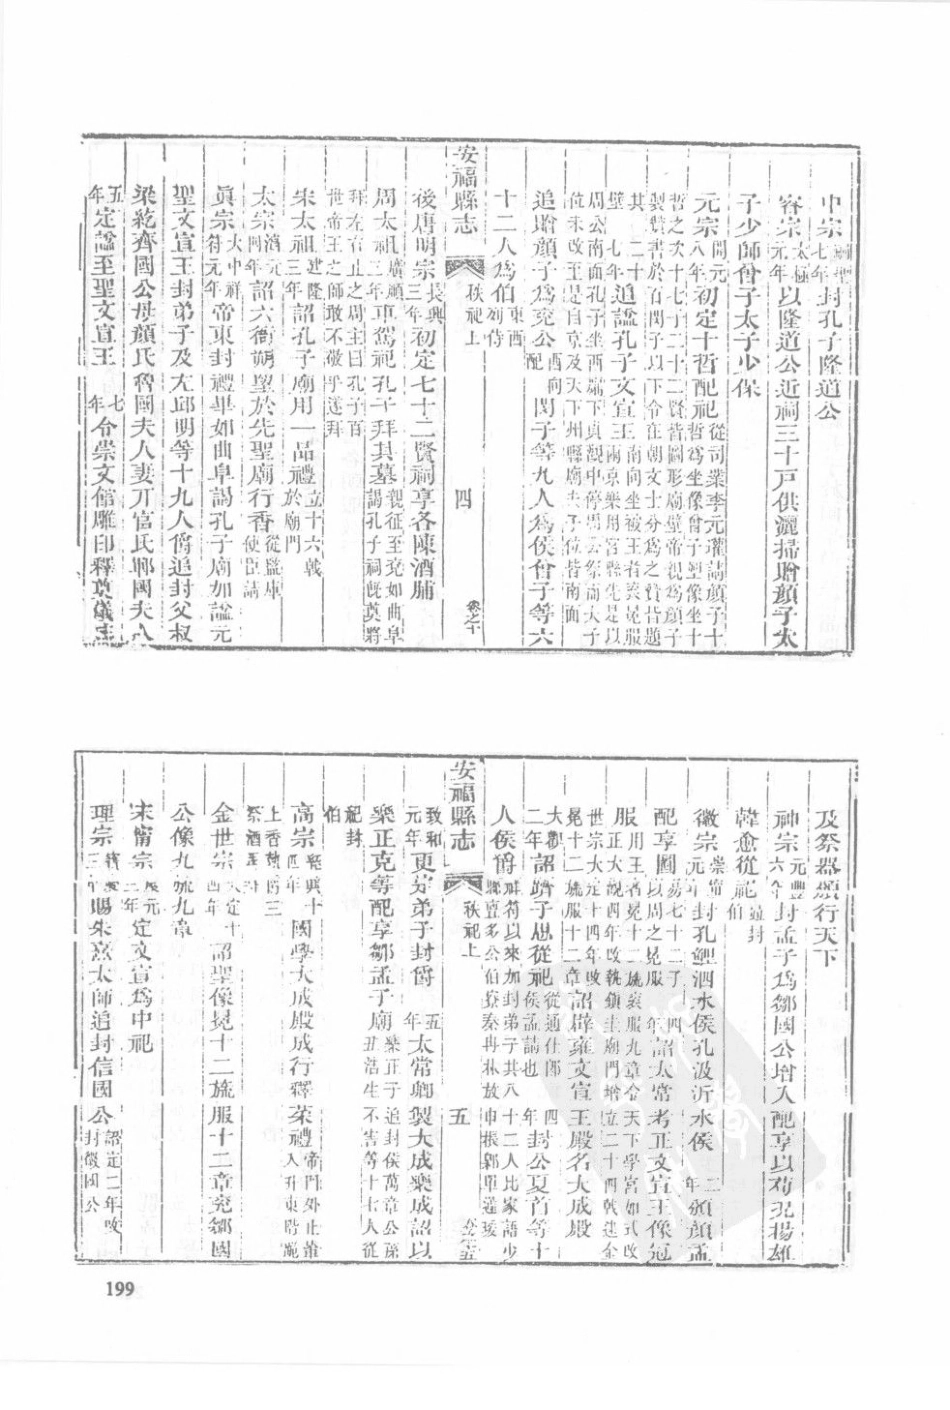 中宗嗣聖七年封孔子隆道公
睿宗太極元年以隆道公近祠三十戶供灑掃贈顏子太
子少師曾子太子少保
元宗開元八年初定十哲配祀從司業李元瓘請顏子十哲之次十七
製贊書於石閔子以下令在朝文士分爲之贊皆題
壁七年追諡孔子文宣王南向坐被王者袞冕服
周公南面孔子坐西
位未改至是自京及天下州縣廟夫子位皆南面
追贈顏子爲兗公配閔子等九人爲侯曾子等六
十二人爲伯東西列侍
安福縣志 秩祀上 四 卷之十
後唐明宗長興三年初定七十二賢祠享各陳酒脯
周太祖廣順三年車駕祀孔子拜其墓親征至兗如曲阜謁孔子祠旣奠將
拜左右止之周主曰孔子百世帝王之師敢不敬乎遂拜
宋太祖建隆三年詔孔子廟用一品禮立十六戟於廟門
太宗詔六衙朔望於先聖廟行香從監庫使臣請
眞宗大中祥符元年帝東封禮畢如曲阜謁孔子廟加諡元
聖文宣王封弟子及左邱明等十九人爵追封父叔
梁紇齊國公母顏氏魯國夫人妻亓官氏鄆國夫人
五年定諡至聖文宣王七年令崇文館雕印釋奠儀
及祭器頒行天下
神宗元豐六年封孟子爲鄒國公增入配享以荀况揚雄
韓愈從祀並封伯
徽宗崇寧元年封孔鯉泗水侯孔汲沂水侯二年頒顏孟
配享圖四年詔太常考正文宣王像冠
服用王者冕十二旒袞服九章令天下學宮如式改
正大觀四年改執鎮圭廟門增立二十四戟建金
世宗大定十四年改冕十二旒服十二章詔辟雍文宣王殿名大成殿
大觀二年詔躋子思從祀從通仕郎侯孟請也四年封公夏首等十
人侯爵祥符以來加封弟子共八十二人比家語少
安福縣志 秩祀上 五
政和元年更定弟子封爵五年太常卿製大成樂成詔以
樂正克等配享鄒孟子廟樂正子追封侯萬章公孫丑浩生不害等十七人從祀封伯
高宗紹興十四年國學大成殿成行釋菜禮帝門外止輦入升東階跪上香執爵三祭酒再拜
金世宗大定十四年詔聖像冕十二旒服十二章兗鄒國
公像九旒九章
宋甯宗慶元三年定文宣爲中祀
理宗三年賜朱熹太師追封信國公紹定二年改封徽國公
199